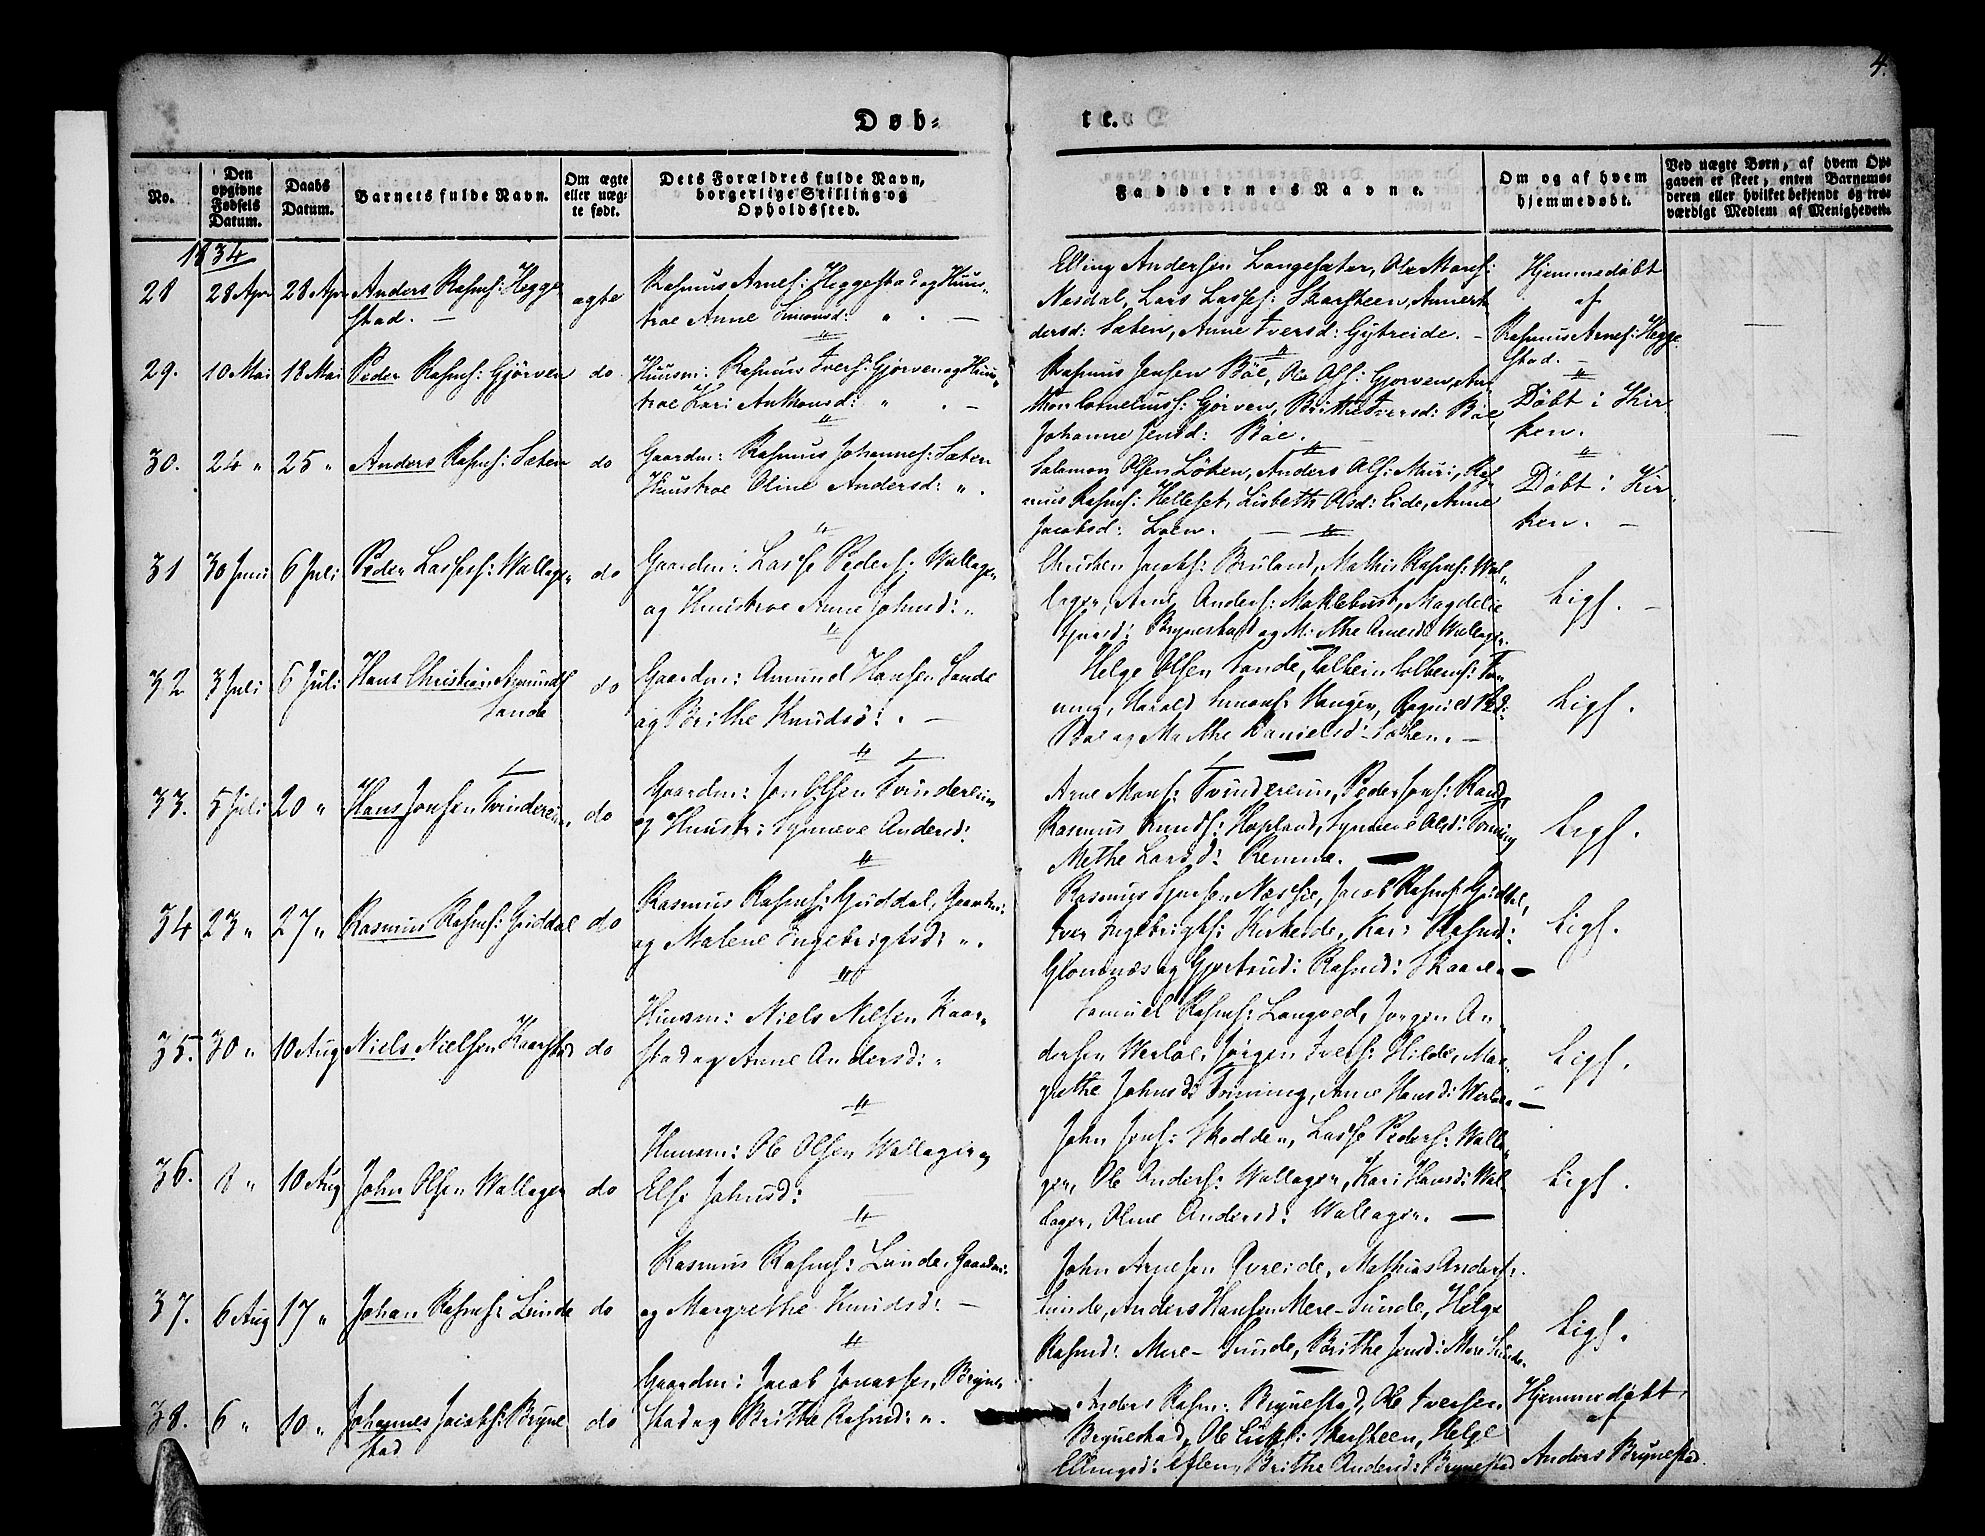 4.
Døb=
te.
No.
Den opgivne Fødsels Datum.
Daabs Datum.
Barnets fulde Navn.
Om ægte eller uægte født.
Dets Forældres fulde Navn, borgerlige Stilling og Opholdssted.
Faddernes Navne.
Om og af hvem hjemmedøbt.
Ved uægte Børn, af hvem Opgaven er skeet, enten Barnemoderen eller hvilket bekjendt og troværdigt Medlem af Menigheden.
1834
28 28 Apr 28 Apr Anders Rasms: Hegge
stad. —
ægte
Rasmus Arnes: Heggestad og Huus-
troe Anne Simonsd: " . —
Elling Andersen Langesæter, Ole Mons:
Nesdal, Lars Lasses: Skarsteen, Anne
dersd: Sæten, Anne Iversd: Gytreide. —
Hjemmedøbt
af
Rasmus Arnes: Hegge
stad. —
29. 10 Mai 18 Mai Peder Rasms: Gjørven do
Huusm: Rasmus Ivers: Gjørven og Huus-
troe Kari Anthonsd: " . —
Rasmus Jensen Bøe, Ole Ols: Gjørven, An-
thon Corneliuss: Gjørven, Brithe Iversd: Bøe,
Johanne Jensd: Bøe. —
Døbt i Kir
ken.
30. 24 " 25 " Anders Rasms: Sæten do
Gaardm: Rasmus Johannes: Sæten
Huustroe Oline Andersd: " .
Salomon Olsen Løken, Anders Ols: Muri, Ras-
mus Rasms: Helleset, Lisbeth Olsd: Eide, Anne
Jacobsd: Loen. —
Døbt i Kir
ken. —
31 30 Juni 6 Juli Peder Lasses: Wallager do
Gaardm: Lasse Peders: Wallager
og Huustroe Anne Johnsd: "
Christen Jacobs: Bruland, Mathis Rasms: Wal-
lager, Arne Anders: Maklebust, Magdelie
Brynestad og Mrthe Arnesd: Wallager.
Ligs. —
32 3 Juli 6 Juli Hans Christian Amunds
Sande
do
Gaardm: Amund Hansen Sande
og Brithe Knudsd: . —
Helge Olsen Sande, Colbein Colbens: Ton
ning, Harald Simons: Hauger, Ragnild
Bøe og Marthe Danielsd: Løken. —
Ligs.
33. 5 Juli 20 " Hans Jonsen Tvindereim do
Gaardm: Jon Olsen Tvindereim
og Huustr: Synneve Andersd:
Arne Mons: Tvindereim, Peder Jons: Rand,
Rasmus Knuds: Hopland, Synneve Olsd: Tonning
Methe Larsd: Remme. —
Ligs.
34 23 " 27 " Rasmus Rasms: Guddal do
Rasmus Rasms: Guddal, Gaardm:
og Malene Ingebrigtsd: " .
Rasmus Nessie, Jacob Rasms: Guddal,
Iver Ingebrigts: Kirkeide, Kari Rasmd:
Glomnæs og Gjertrud: Rasmd: Skaare —
Ligs.
35. 30 " 10 Aug Niels Nielsen Kaarstad do
Huusm: Niels Nielsen Kaar-
stad og Anne Andersd: "
Samuel Rasms: Langved, Jørgen An-
dersen Werløe, Jørgen Ivers: Hilde, Mar-
grethe Johnsd: Tonning, Anne Hansd: Werløe. —
Ligs.
36. 8 " 10 Aug John Olsen Wallager do
Huusm: Ole Olsen Wallager og
Else Johnsd:
John Jons: Skodden, Lasse Peders: Walla-
ger, Ole Anders: Wallager, Kari Hansd: Wal-
lager, Oline Andersd: Wallager. —
Ligs.
37. 6 Aug 17 " Johan Rasms: Lunde do
Rasmus Rasms: Lunde, Gaardm:
og Margrethe Knudsd: —
John Arnesen Qvreide, Mathias Anders:
Lunde, Anders Hansen Mere-Sunde, Helge
Rasmd: Mere-Sunde, Brithe Jensd: Mere Sunde.
Ligs.
38. 6 " 10 " Johannes Jacobs: Bryne
stad
do
Gaardm: Jacob Jonassen Bryne-
stad og Brithe Rasmd: " .
Anders Rasm: Brynestad, Ole Iversen
Brynestad, Ole Skarsteen, Helge
Ellingsd: Brithe Andersd: Brynestad
Hjemmedøbt,
af
Anders Brynestad.